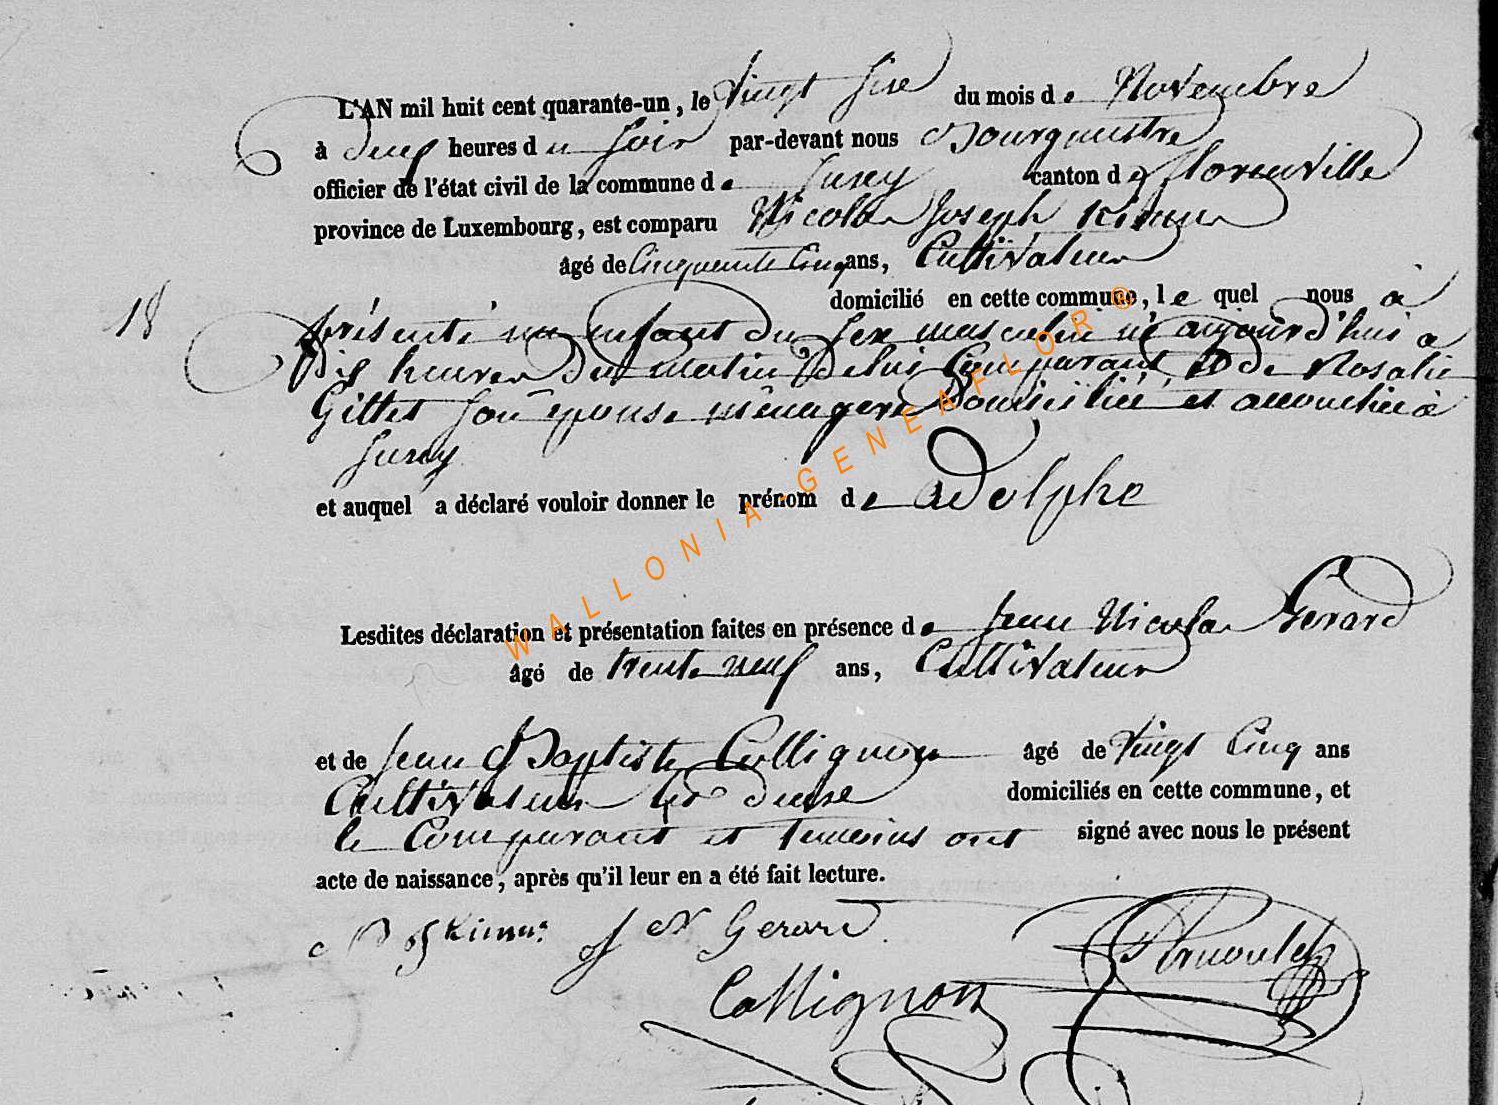 L'AN mil huit cent quarante-un, le Vingt Sixe du mois de Novembre
à Neuf heures du Soir par-devant nous Bourgmestre
officier de l'état civil de la commune de Suxy canton de florenville
province de Luxembourg, est comparu Nicolas Joseph
âgé de Cinquante Cinq ans, Cultivateur
domicilié en cette commune, le quel nous à
18
présenté un enfant du sex masculin né aujourd'hui a
Dix heures Du matin De lui Comparant & de Rosalie
Gillet son épouse ménagere Domiciliée et accouchée à
Suxy
et auquel a déclaré vouloir donner le prénom de adolphe
Lesdites déclaration et présentation faites en présence de Jean Nicolas Gerard
âgé de trente neuf ans, Cultivateur
et de Jean Baptiste Collignon âgé de Vingt Cinq ans
Cultivateur domiciliés en cette commune, et
le Comparant et temoins ont signé avec nous le présent
acte de naissance, après qu'il leur en a été fait lecture.
J N Gerard
Collignon
WALLONIA-GENEAFLOR®